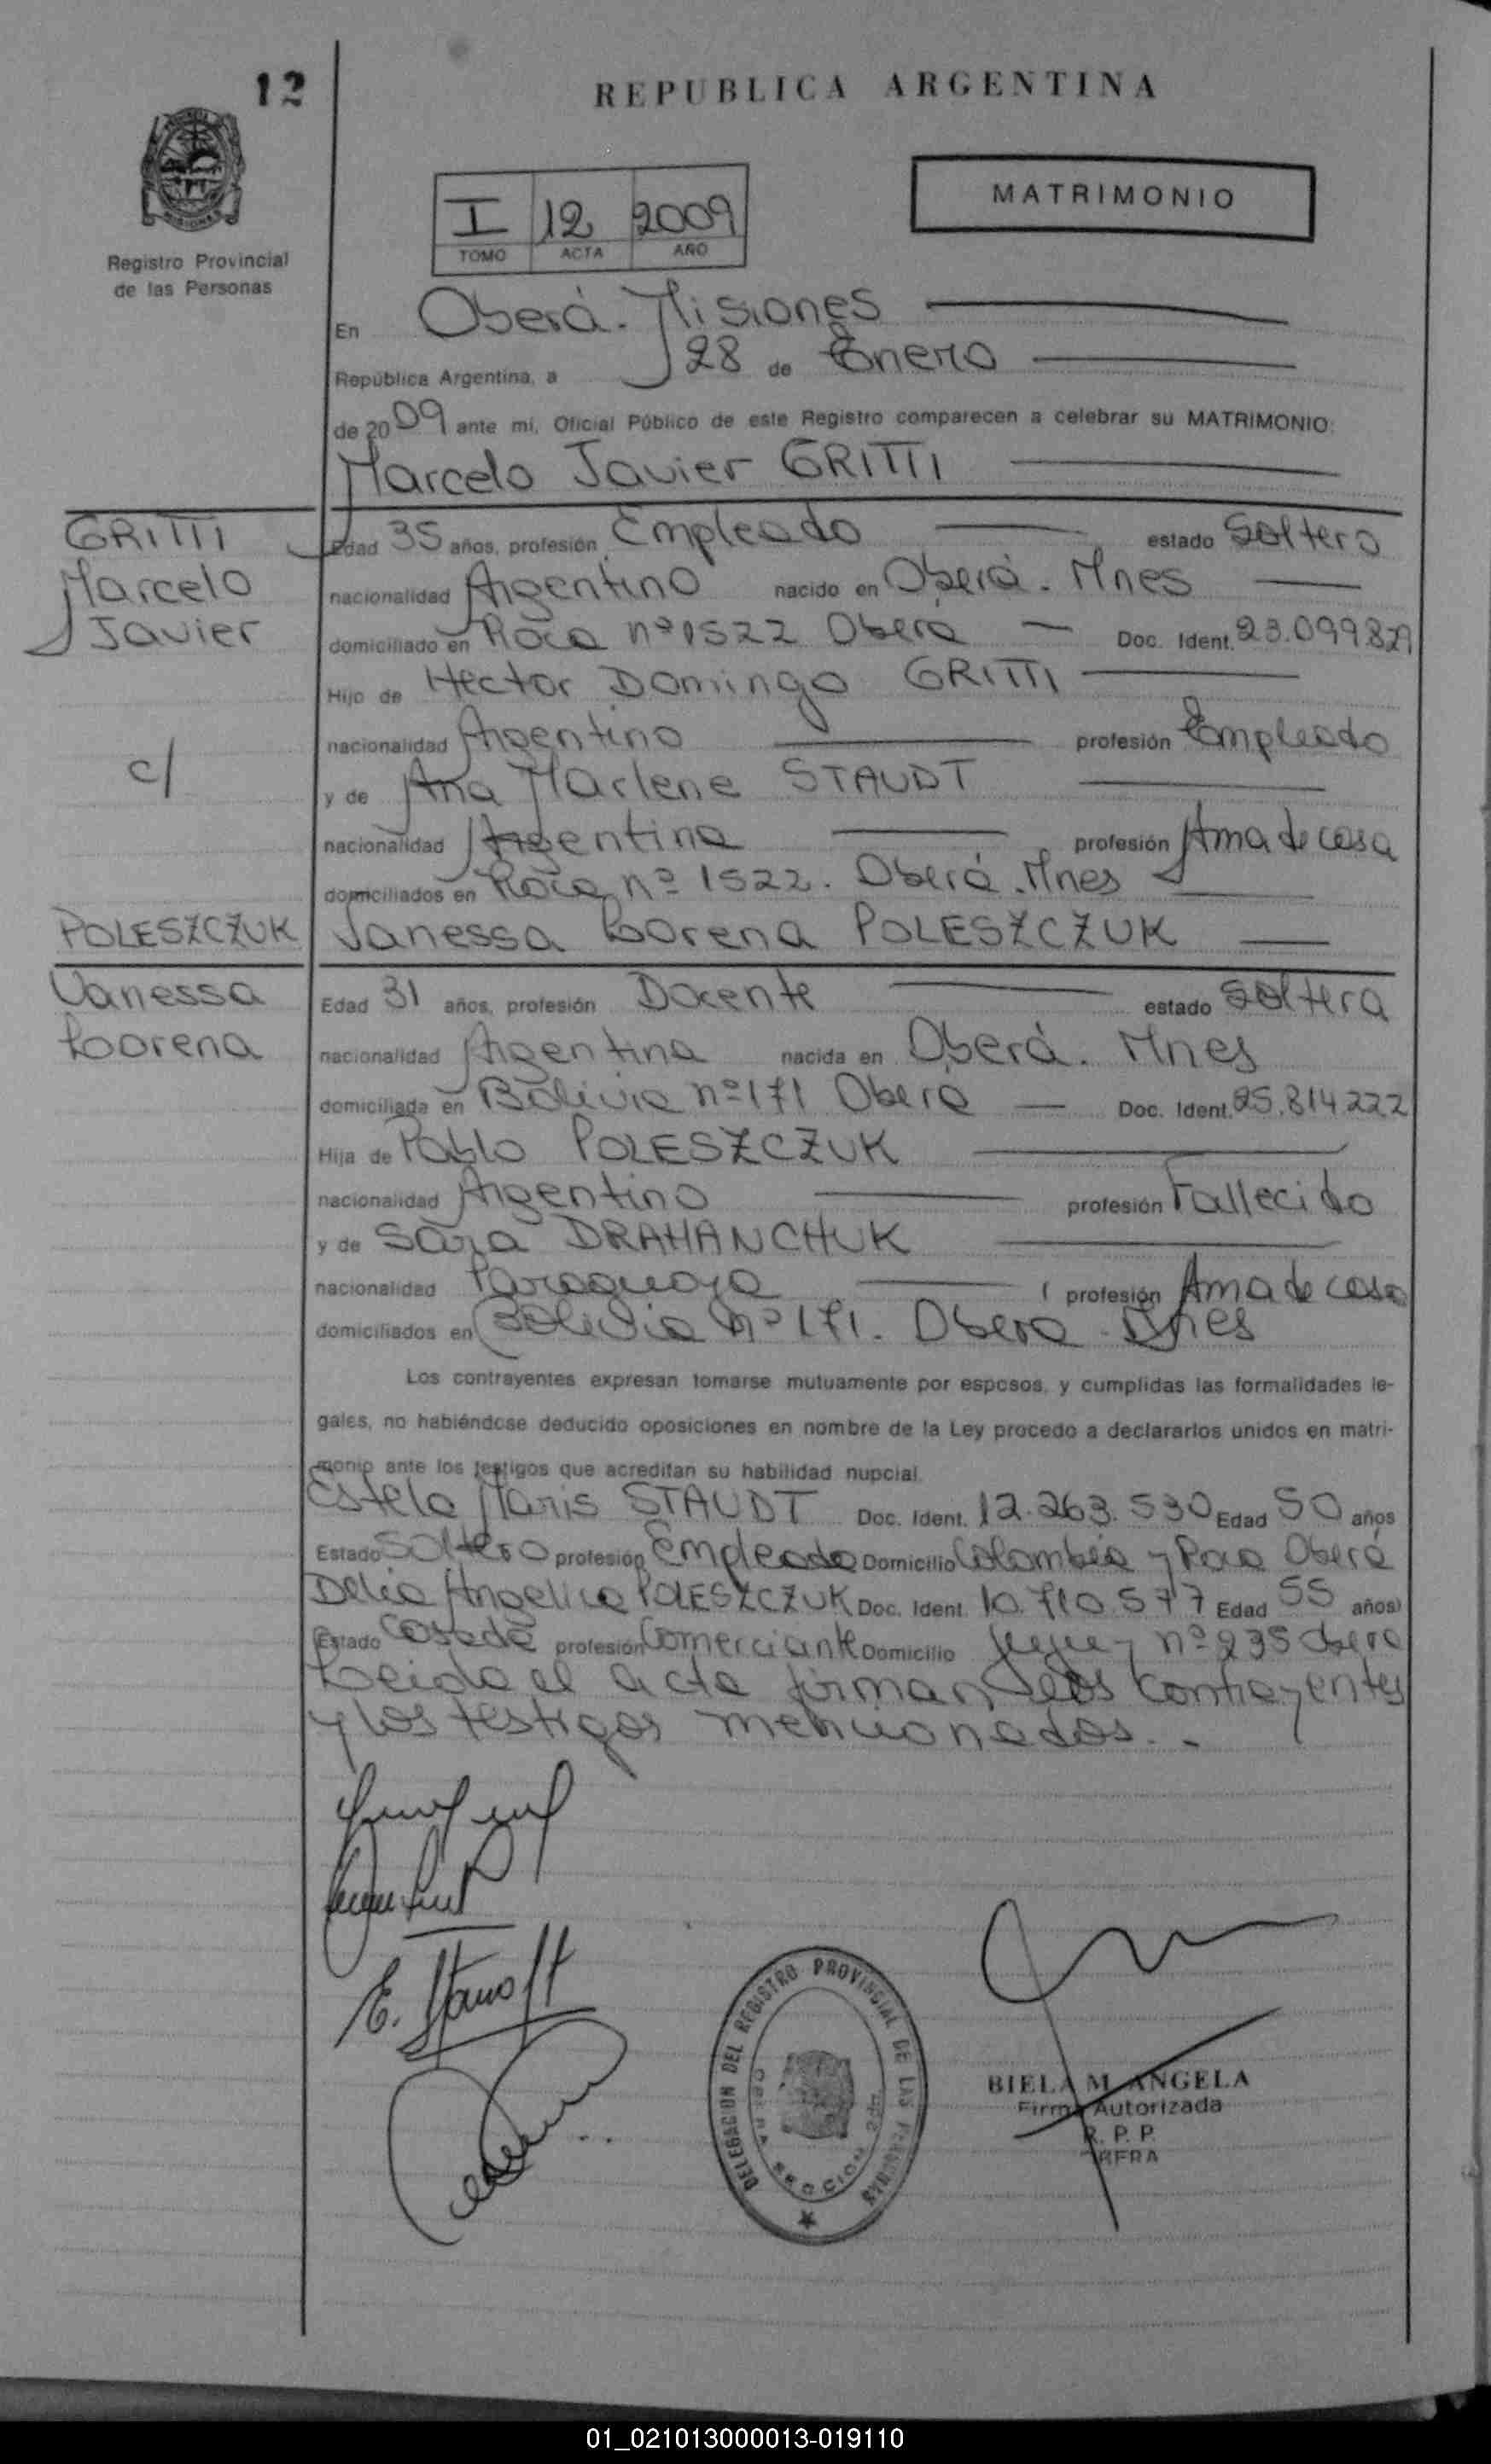 12
REPUBLICA ARGENTINA
MATRIMONIO
I 12 2009
TOMO ACTA AÑO
Registro Provincial
de las Personas
En Oberá. Misiones
República Argentina, a 28 de Enero
de 2009 ante mi, Oficial Público de este Registro comparecen a celebrar su MATRIMONIO:
Marcelo Javier GRITTI
GRITTI
Marcelo
Javier
c/
POLESZCZUK
Vanessa
Lorena
Edad 35 años, profesión Empleado estado Soltero
nacionalidad Argentino nacido en Oberá. Mnes
domiciliado en Roca nº 1522 Oberá Doc. Ident. 23.099.829
Hijo de Hector Domingo GRITTI
nacionalidad Argentino profesión Empleado
y de Ana Marlene STAUDT
nacionalidad Argentina profesión Ama de casa
domiciliados en Roca nº 1522. Oberá. Mnes
Vanessa Lorena POLESZCZUK
Edad 31 años, profesión Docente estado Soltera
nacionalidad Argentina nacida en Oberá. Mnes
domiciliada en Bolivia nº 171 Oberá Doc. Ident. 25.814.222
Hija de Pablo POLESZCZUK
nacionalidad Argentino profesión Fallecido
y de Sara DRAHANCHUK
nacionalidad Paraguaya profesión Ama de casa
domiciliados en Bolivia nº 171. Oberá. Mnes
Los contrayentes expresan tomarse mutuamente por esposos, y cumplidas las formalidades le-
gales, no habiéndose deducido oposiciones en nombre de la Ley procedo a declararlos unidos en matri-
monio ante los testigos que acreditan su habilidad nupcial.
Estela Maris STAUDT Doc. Ident. 12.263.530 Edad 50 años
Estado Soltero profesión Empleada Domicilio Colombia y Roca Oberá
Delia Angelica POLESZCZUK Doc. Ident. 10.710.577 Edad 55 años
Estado Casada profesión Comerciante Domicilio Jujuy nº 235 Oberá
Leida el acta firman los contrayentes
y los testigos mencionados..
E. Staudt
DELEGACION DEL REGISTRO PROVINCIAL DE LAS PERSONAS
OBERA SECCION 2da.
BIELA M. ANGELA
Firma Autorizada
R. P. P.
OBERA
01_021013000013-019110